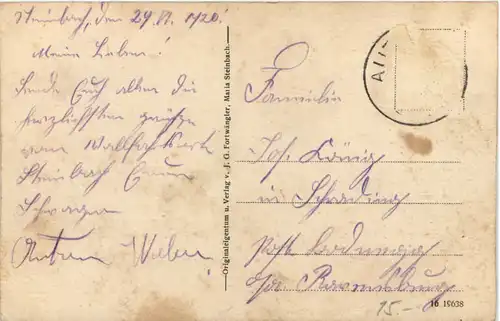 Steinbach, den 29. VI. 1920!
Meine Lieben!
Sende Euch allen die
herzlichsten Grüße
vom Wallfahrtsorte
Steinbach Euer
Schwager
Anton Weber
Originaleigentum u. Verlag v. J. G. Fortwängler, Maria Steinbach.
Familie
Jos. König
in
Post Bodnegg
Ravensburg
15.-
16 19638